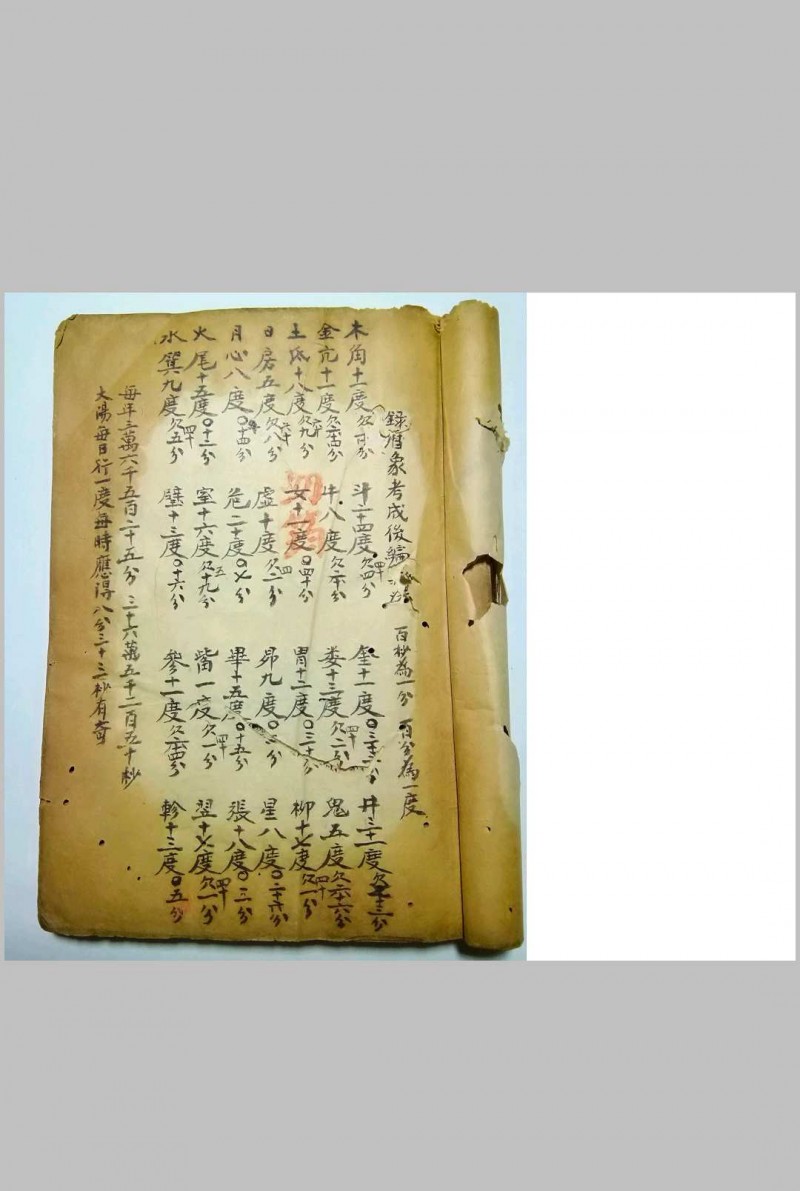 錄厯象考成後編 百秒為一分 百分為一度
木角十一度欠分 斗二十四度欠四分 奎十一度〇分 井三十一度欠十三分
金亢十一度欠分 牛八度欠分 婁十三度欠二分 鬼五度欠六分
土氐十八度欠九分 女十一度〇四十分 胃十二度〇三十分 柳十七度欠一分
日房五度欠八分 虛十度欠二分 昴九度〇分 星八度〇分
月心八度〇十四分 危二十度〇七分 畢十五度〇十五分 張十八度〇三分
火尾十五度〇十二分 室十六度欠十九分 觜一度欠一分 翌十七度欠一分
水箕九度欠五分 壁十三度〇十六分 參十一度欠分 軫十三度〇五分
每年三萬六千五百二十五分 三十六萬五千二百五十秒
大陽每日行一度每時應得八分三十三秒有奇